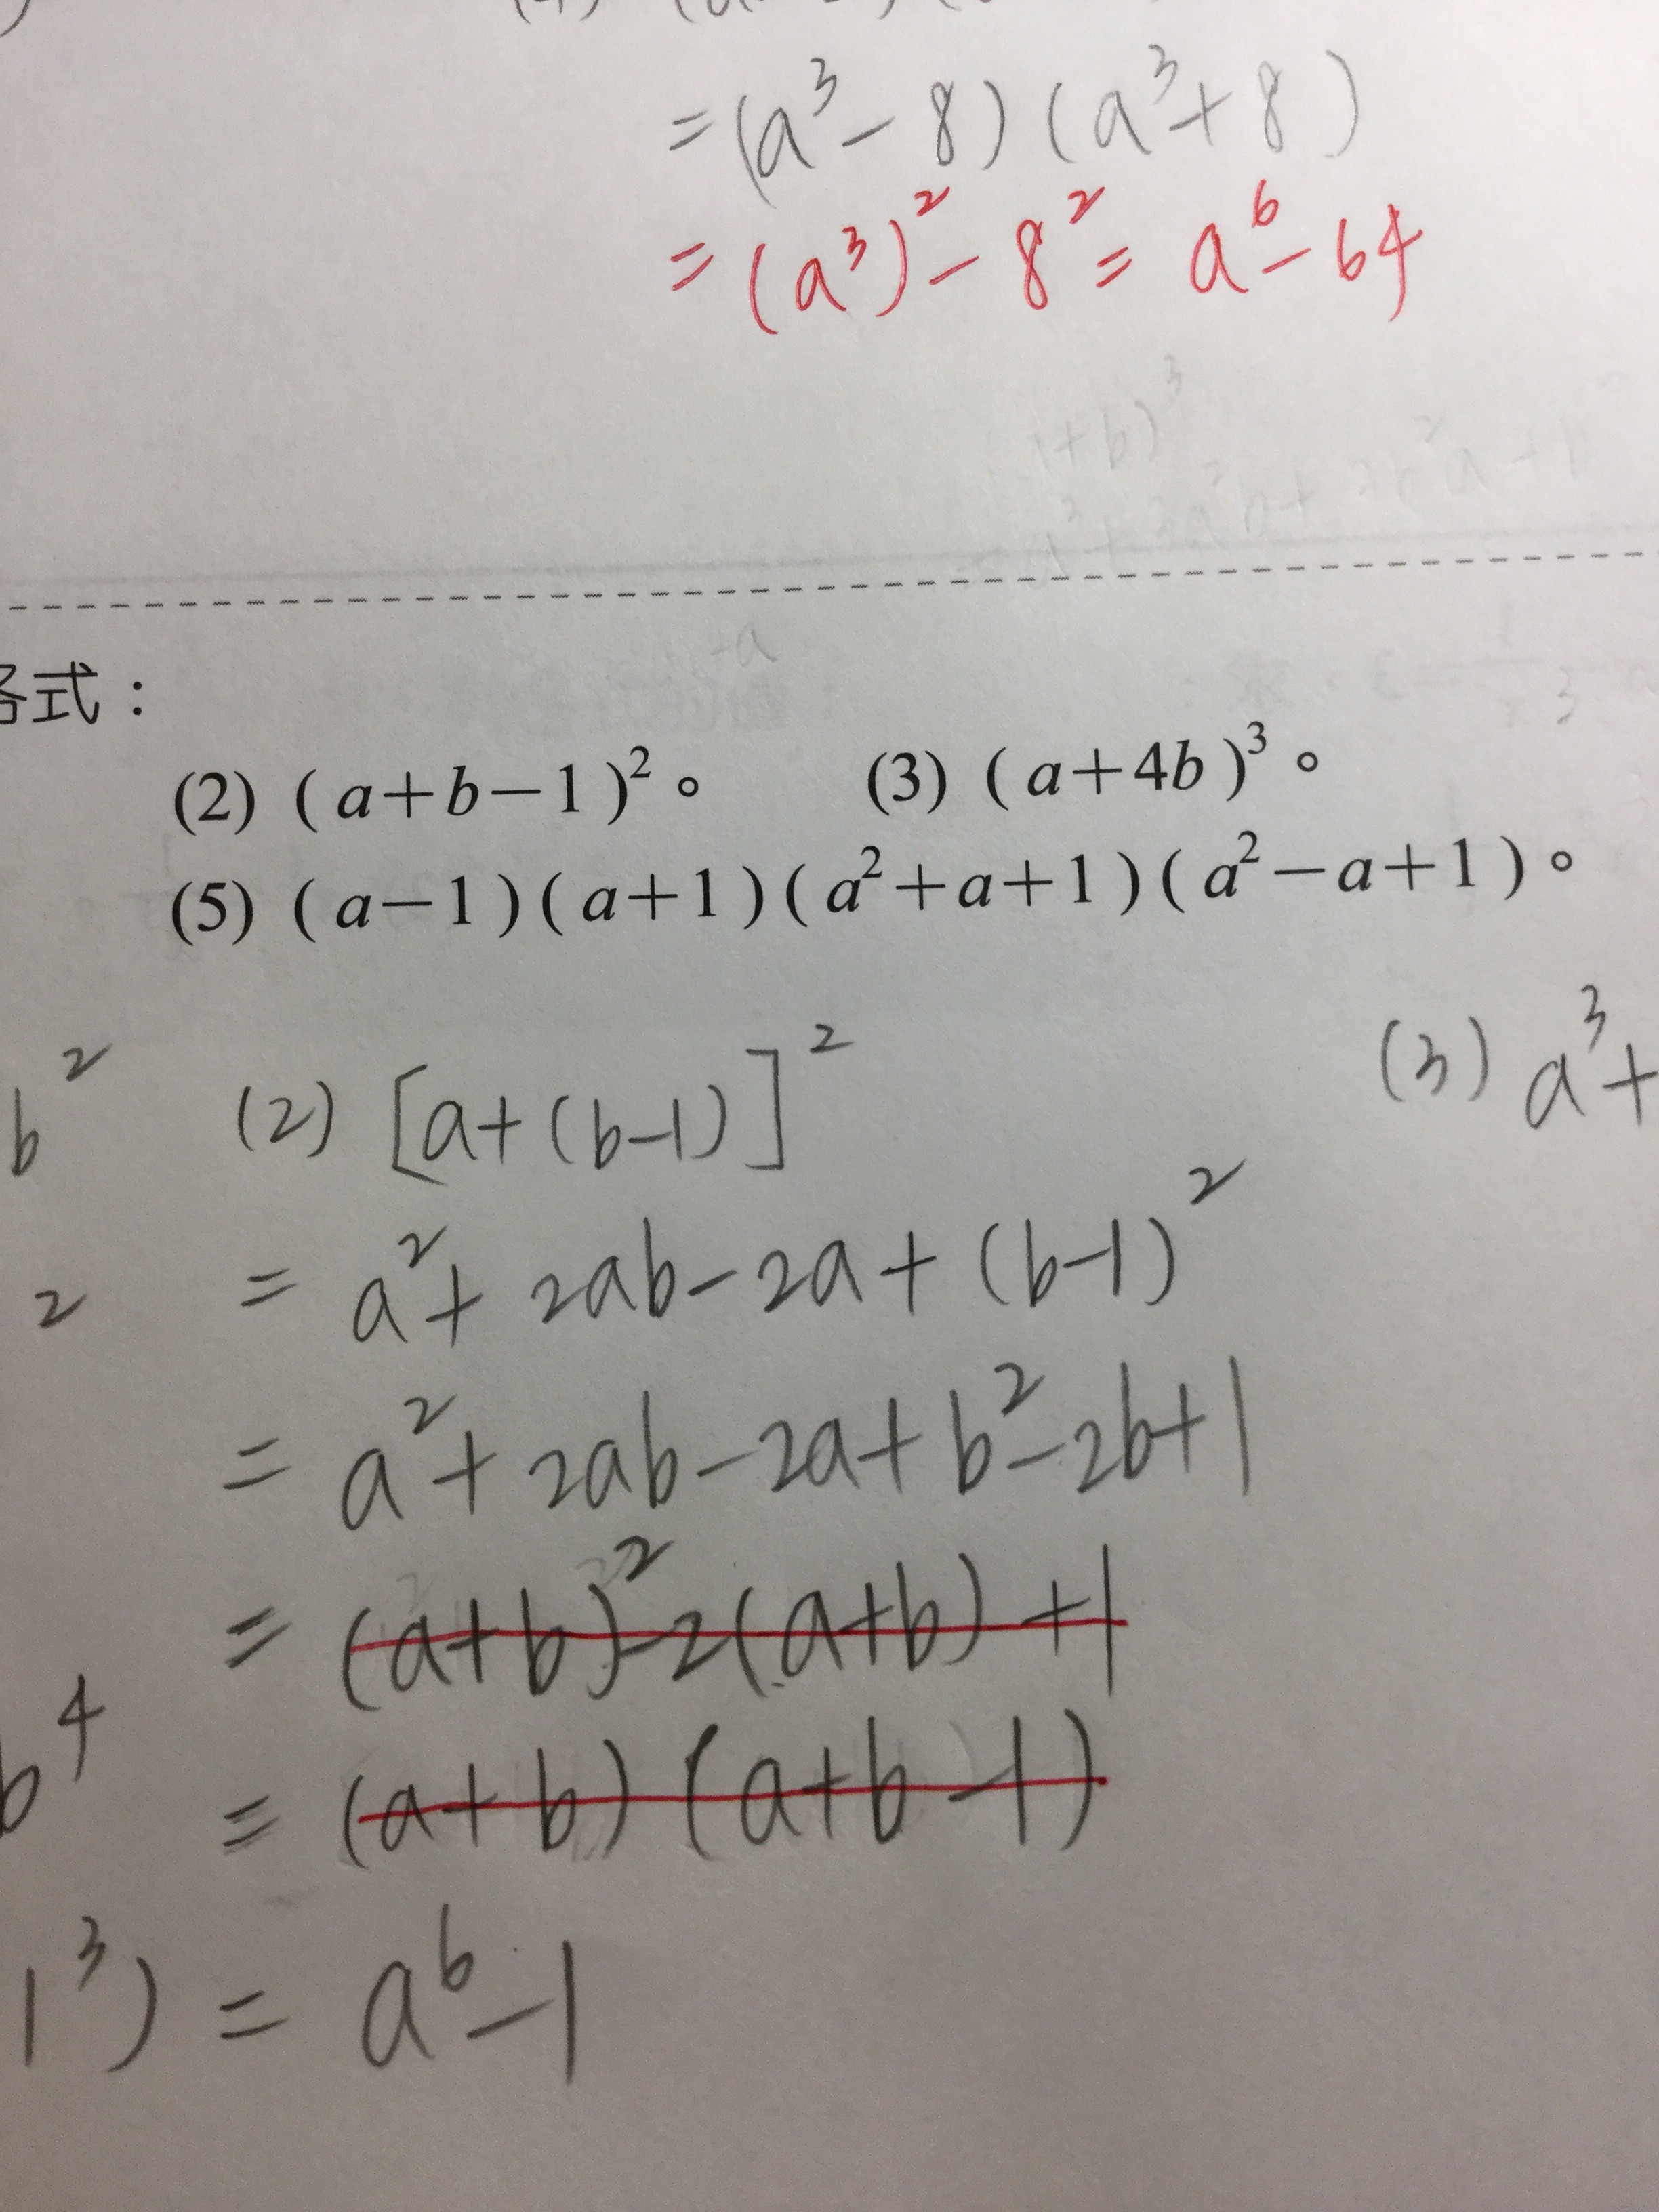 = (a³ - 8) (a³ + 8)
= (a³)² - 8² = a⁶ - 64
式：
(2) (a+b−1)²。 (3) (a+4b)³。
(5) (a−1)(a+1)(a²+a+1)(a²−a+1)。
b² (2) [a+(b-1)]² (3) a³+
2 = a² + 2ab - 2a + (b-1)²
= a² + 2ab - 2a + b² - 2b + 1
= (a+b)² - 2(a+b) + 1
b⁴ = (a+b) (a+b-1)
1³) = a⁶ - 1